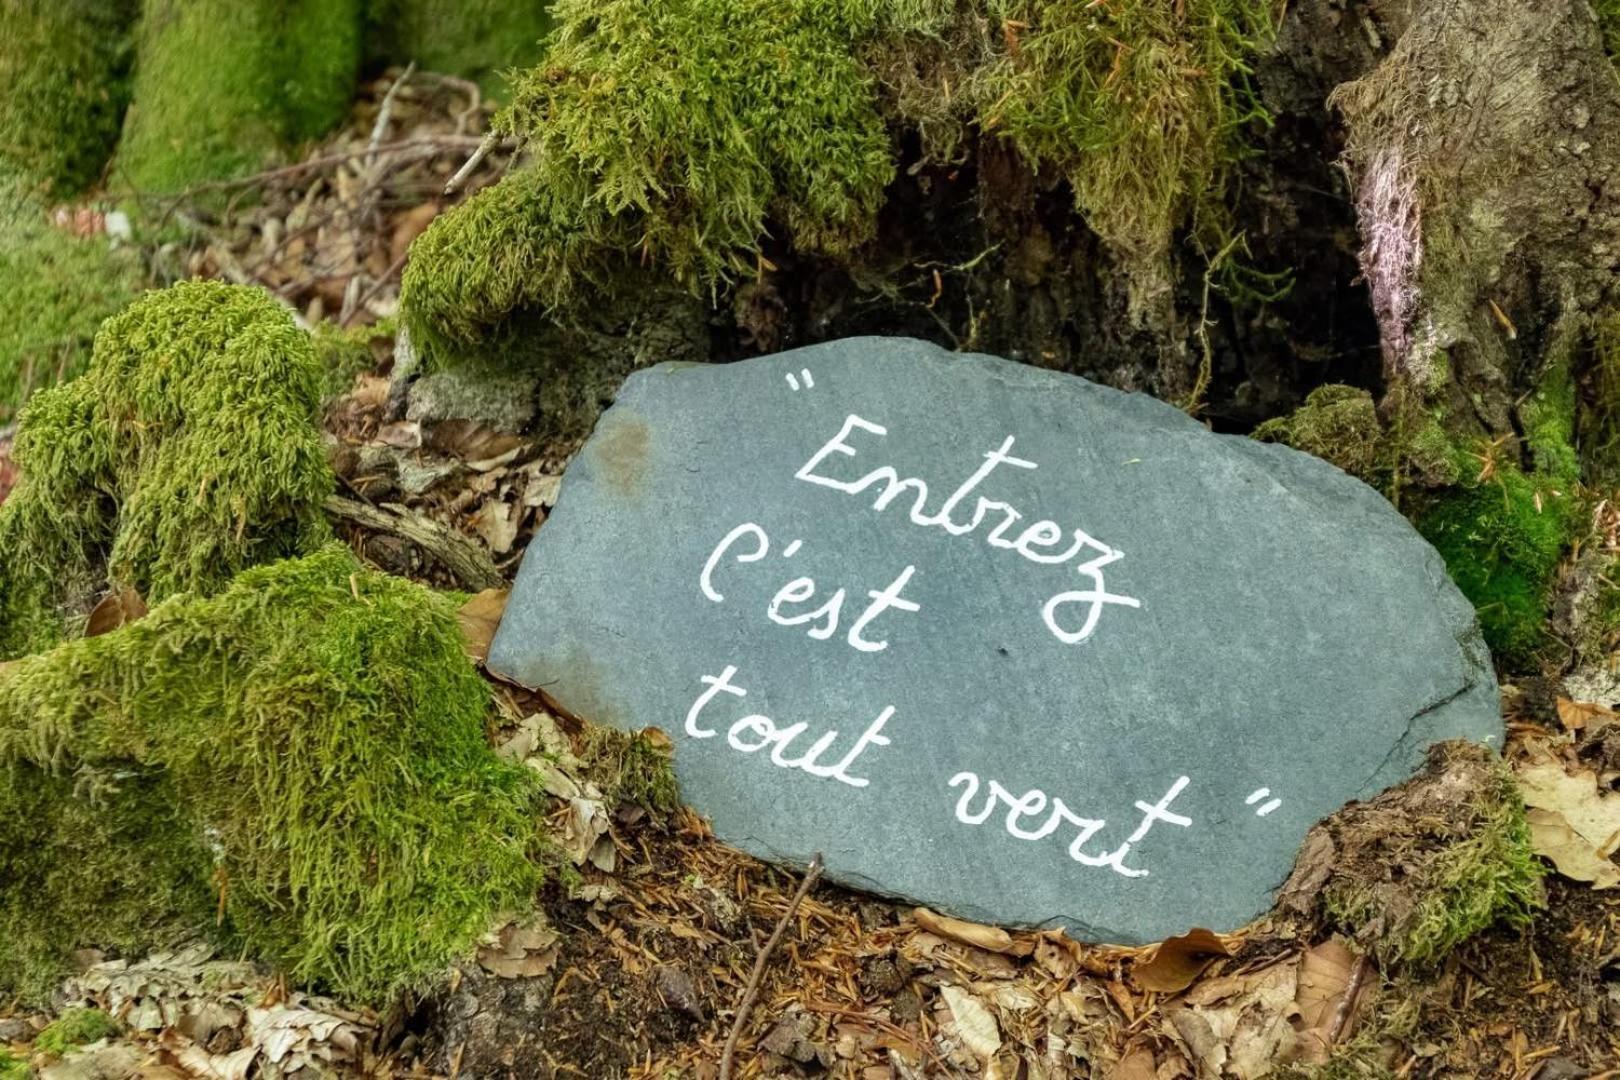 "Entrez
C'est
tout vert"